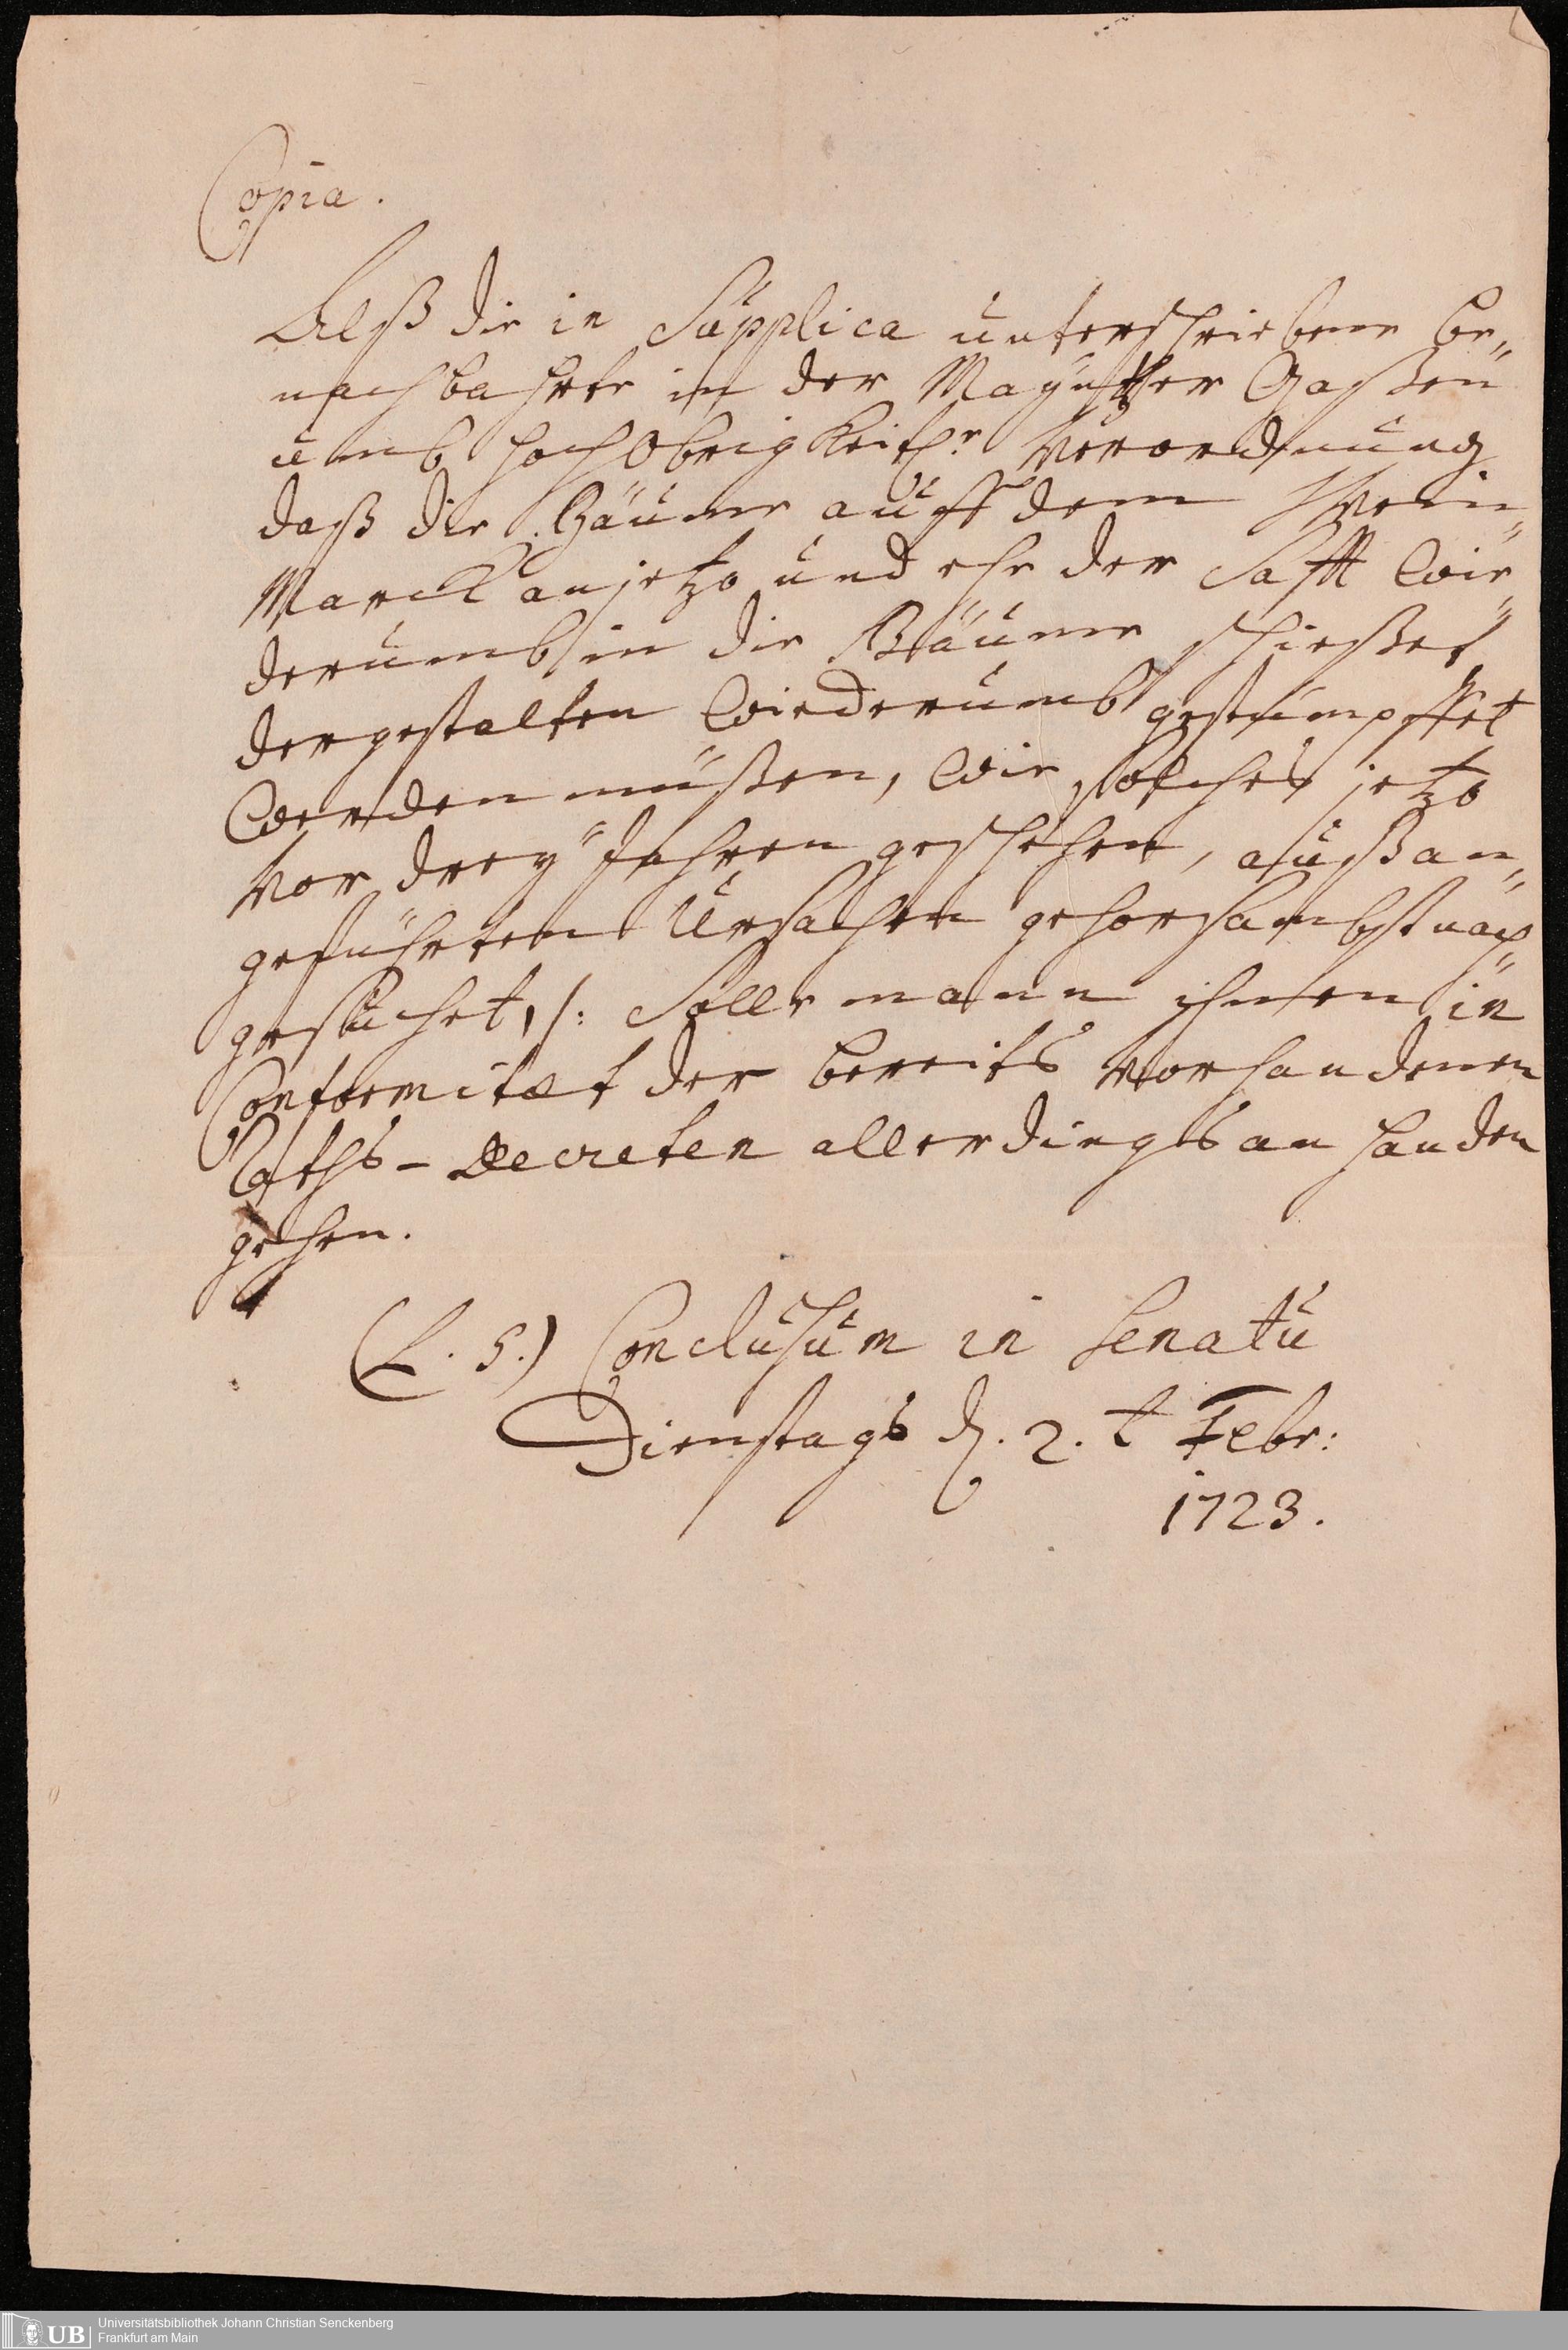 Copia.
Alß die in Supplica unterschriebene be„
nachbahrte in der Mayntzer Gaßen
umb hochObrigkeitl.r Verordnung
daß die Bäume auff dem Wein„
Marck anjetzo und ehe der Safft wie„
derumb in die Bäume schießet
dergestalten wiederumb gestümpffet
werden müßen, wie solches jetzo
vor drey Jahren geschehen, auß an„
geführten Ursachen gehorsambst nach„
gesuchet, /: Solle mann ihnen in
Conformitæt der bereits vorhandenen
Raths-Decreten allerdings an handen
gehen.
(L. S.) Conclusum in Senatu
Dienstags d. 2.t Febr:
1723.
UB
Universitätsbibliothek Johann Christian Senckenberg
Frankfurt am Main